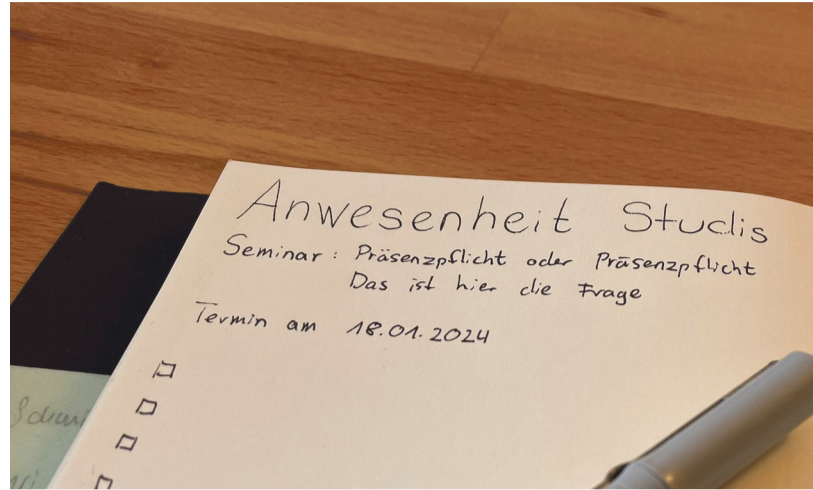 Anwesenheit Studis
Seminar: Präsenzpflicht oder Präsenzpflicht
Das ist hier die Frage
Termin am 18.01.2024